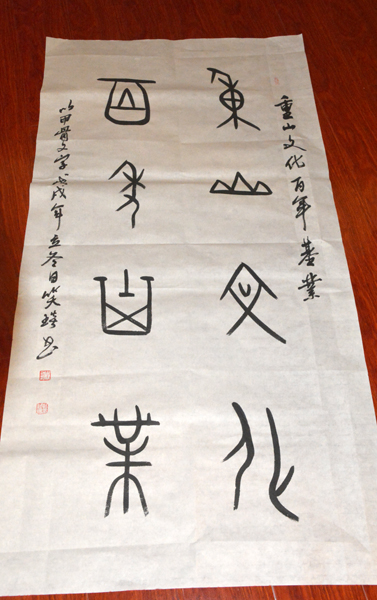 重山文化百年基業
重山文化
百年基業
以甲骨文字戊戌年立冬日笑